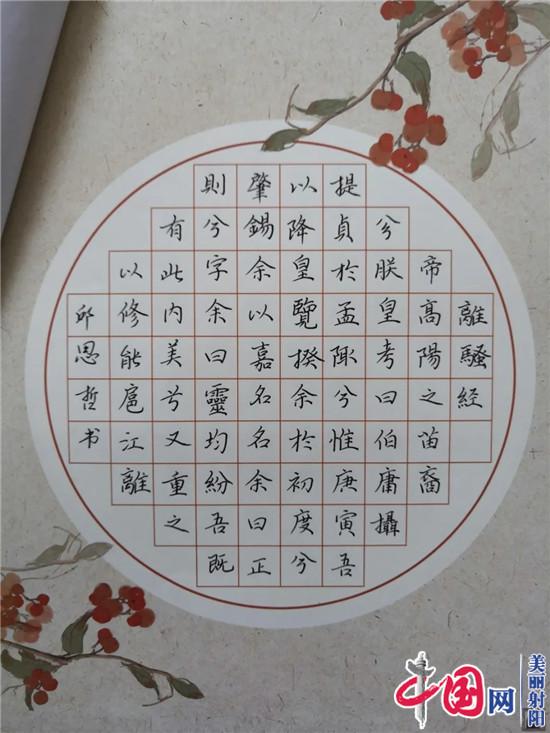 離騷経
帝高陽之苗裔
兮朕皇考曰伯庸攝
提貞於孟陬兮惟庚寅吾
以降皇覽揆余於初度兮
肇錫余以嘉名名余曰正
則兮字余曰靈均紛吾既
有此内美兮又重之
以修能扈江離
邱思哲书
中国网
美丽射阳